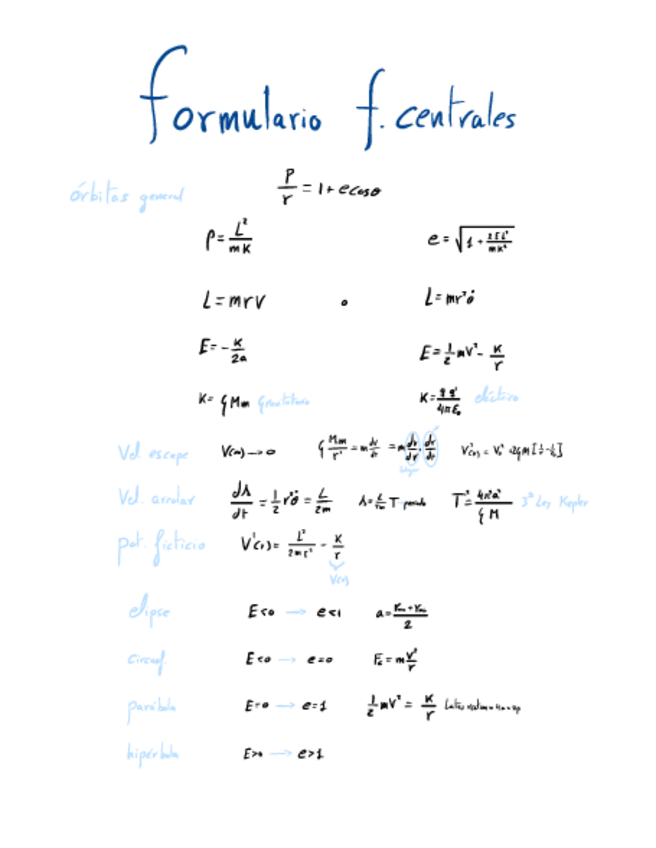 formulario f. centrales
órbitas general P/r = 1 + e cosθ
P = L²/mK e = √(1 + 2EL²/mK²)
L = mrv o L = mr²θ̇
E = -K/2a E = 1/2 mV² - K/r
K = GMm gravitatorio K = q q'/4πε₀ eléctrico
Vel escape V(∞) → 0 G Mm/r² = m dv/dt = m dv/dr · dr/dt V²(r) = V₀² + 2GM[1/r - 1/r₀]
Vel. areolar dA/dt = 1/2 r²θ̇ = L/2m A = L/2m T periodo T² = 4π²a³/GM 3ª Ley Kepler
pot. ficticio V'(r) = L²/2mr² - K/r
V(r)
elipse E<0 → e<1 a = /2
circunf. E<0 → e=0 Fc = m V²/r
parábola E=0 → e=1 1/2 mV² = K/r
hipérbola E>0 → e>1